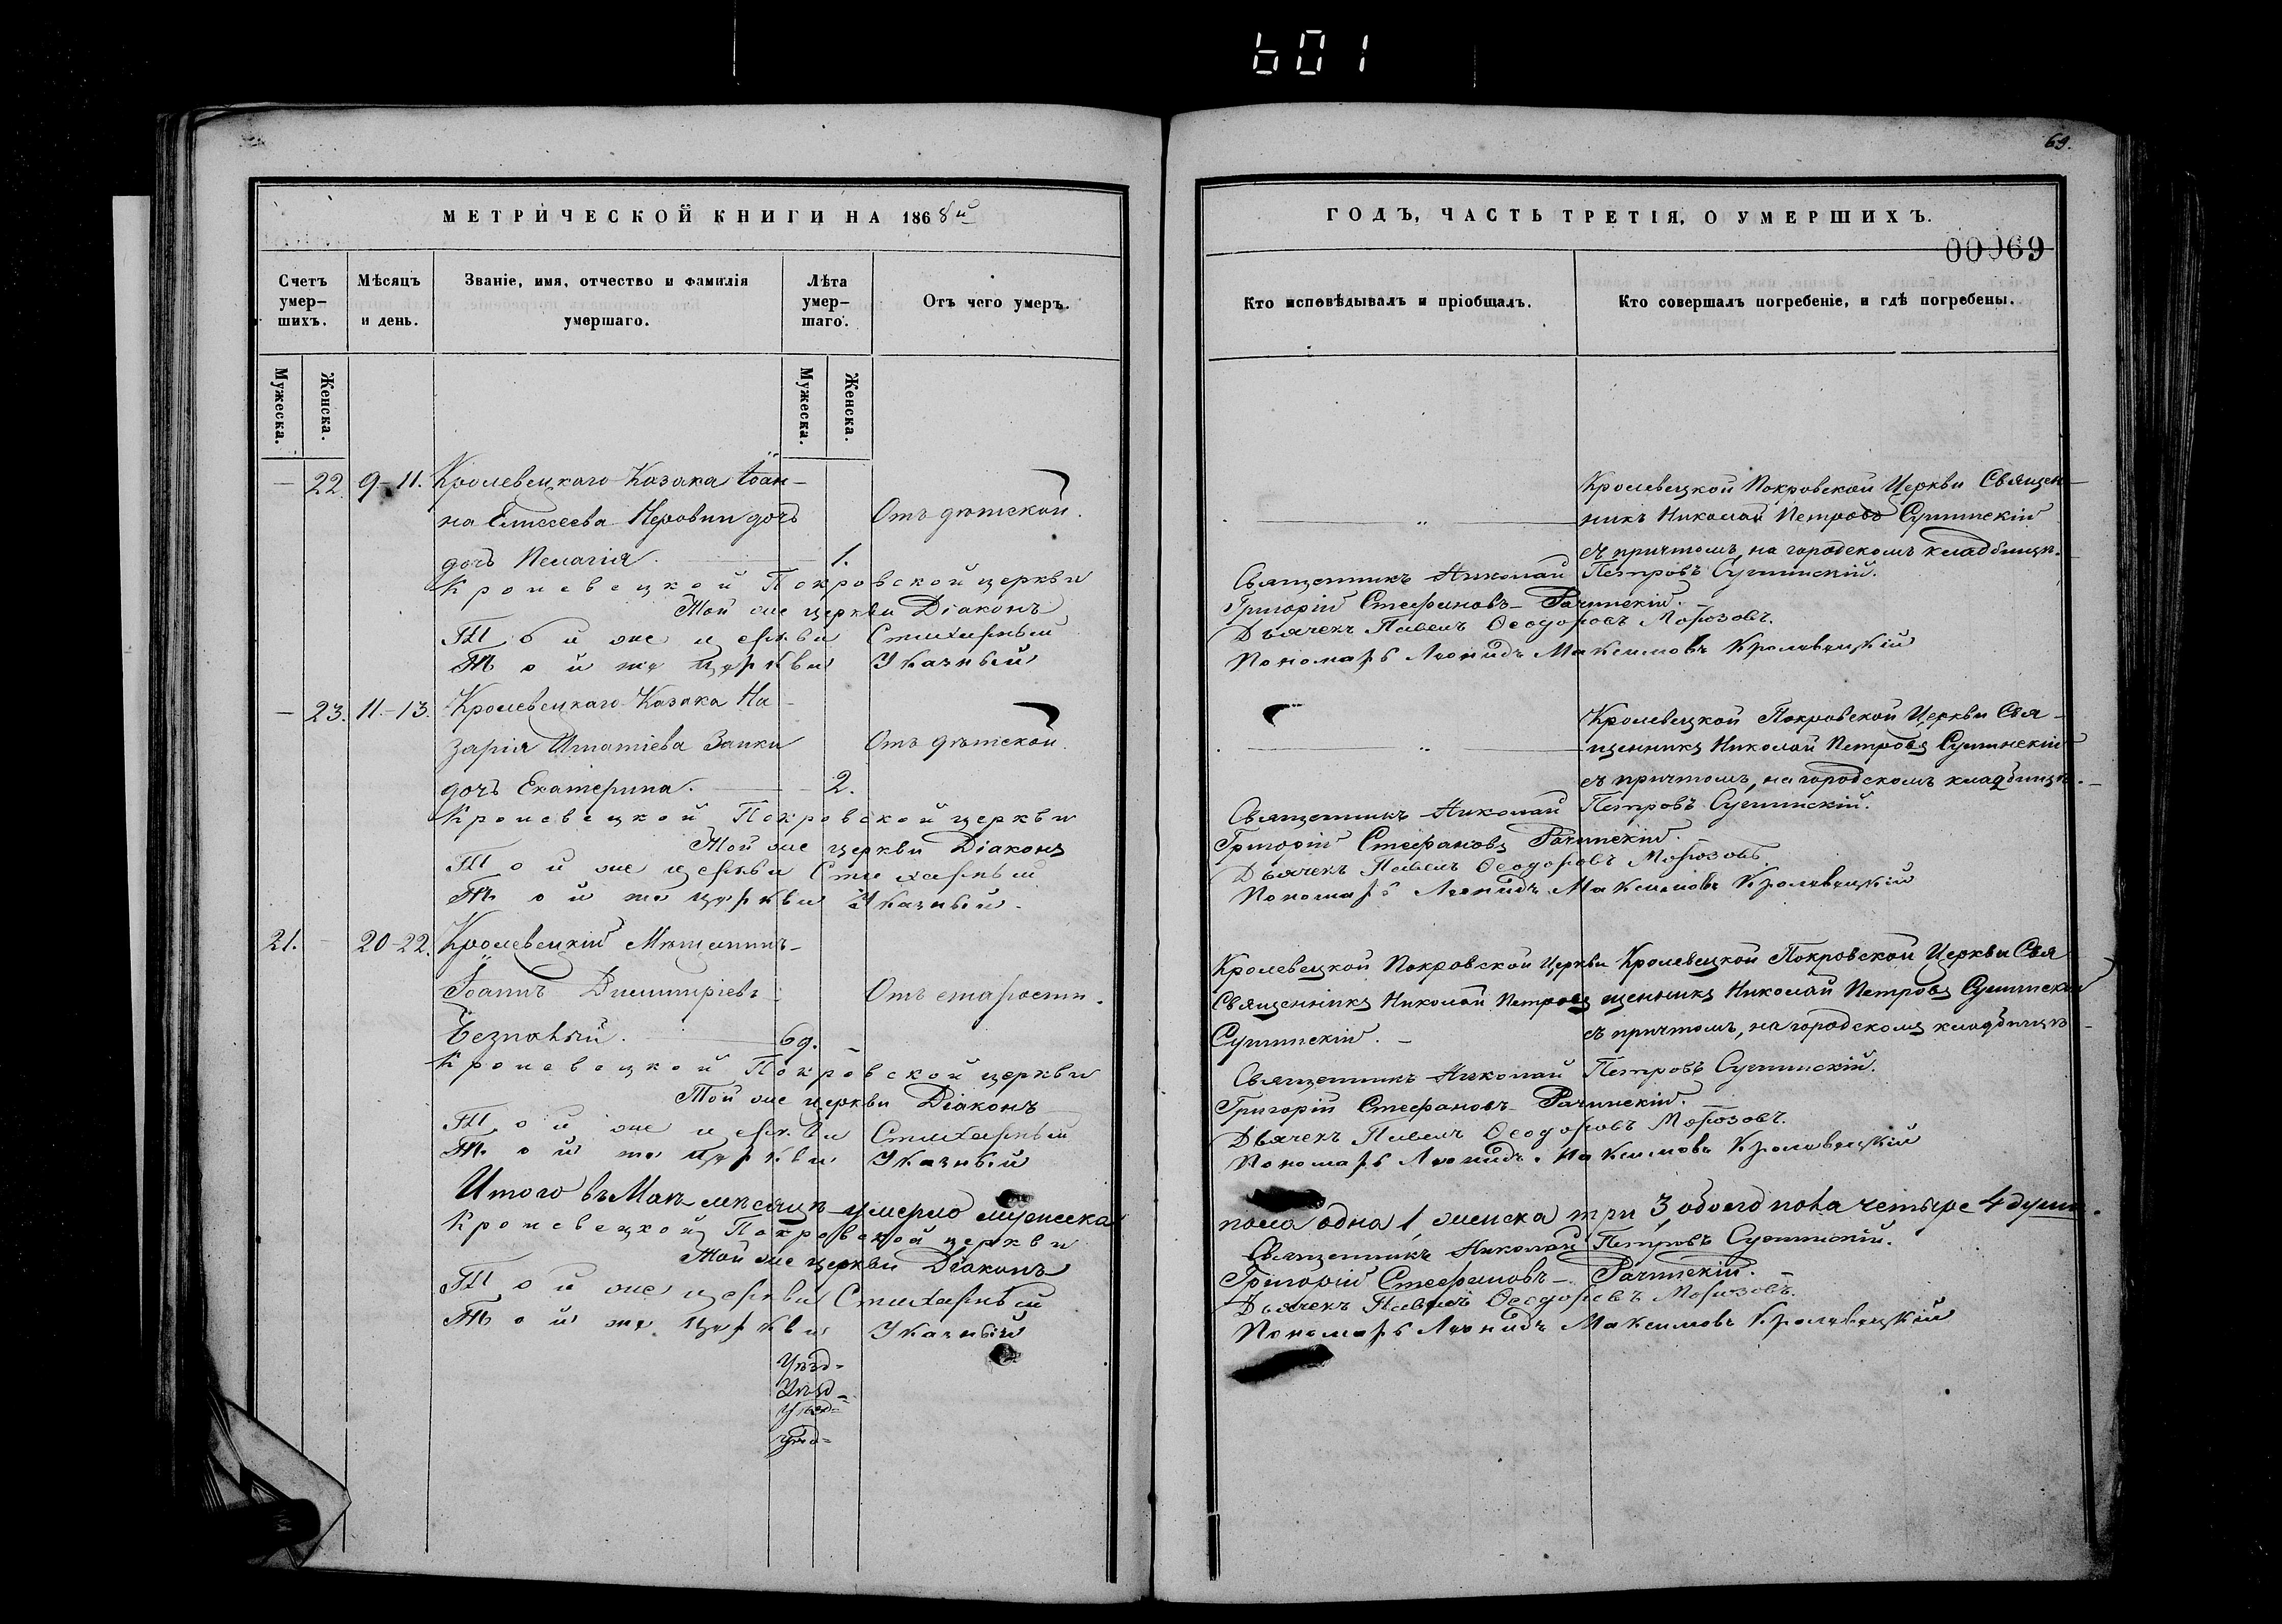 601
69.
МЕТРИЧЕСКОЙ КНИГИ НА 1868й
Счетъ умер-шихъ.
Мѣсяцъ и день.
Званіе, имя, отчество и фамилія умершаго.
Лѣта умер-шаго.
Отъ чего умеръ.
Мужеска.
Женска.
Мужеска.
Женска.
— 22. 9-11. Кролевецкаго Козака Іоан-
на Елисеева дочь Отъ дѣтской.
дочь Пелагія. 1.
Кролевецкой Покровской церкви
Той же церкви Діаконъ
Той же церкви Стихарный
Той же Церкви Указный
— 23. 11-13. Кролевецкаго Козака На-
зарія Игнатіева Заики Отъ дѣтской.
дочь Екатерина. 2.
Кролевецкой Покровской церкви
Той же церкви Діаконъ
Той же церкви Стихарный
Той же Церкви Указный.
21. - 20-22. Кролевецкій Мѣщанинъ-
Іоаннъ Димитріевъ Отъ старости.
69.
Кролевецкой Покровской церкви
Той же церкви Діаконъ
Той же церкви Стихарный
Той же Церкви Указный
Итого въ Маѣ мѣсяцѣ умерло мужеска
Кролевецкой Покровской церкви
Той же церкви Діаконъ
Той же церкви Стихарный
Той же Церкви Указный
ГОДЪ, ЧАСТЬ ТРЕТІЯ, О УМЕРШИХЪ.
00069
Кто исповѣдывалъ и пріобщалъ.
Кто совершалъ погребеніе, и гдѣ погребены.
Кролевецкой Покровской Церкви Священ-
никъ Николай Петровъ Сулимскій
съ причтомъ, на городскомъ кладбищѣ.
Священникъ Николай Петровъ Сулимскій.
Григорій Стефановъ Рачинскій.
Дьячекъ Павелъ Ѳеодоровъ Морозовъ.
Пономарь Леонидъ Максимовъ Кролевецкій
Кролевецкой Покровской Церкви Свя-
щенникъ Николай Петровъ Сулимскій
съ причтомъ, на городскомъ кладбищѣ.
Священникъ Николай Петровъ Сулимскій.
Григорій Стефановъ Рачинскій.
Дьячекъ Павелъ Ѳеодоровъ Морозовъ.
Пономарь Леонидъ Максимовъ Кролевецкій
Кролевецкой Покровской Церкви Кролевецкой Покровской Церкви Свя
Священникъ Николай Петровъ щенникъ Николай Петровъ Сулимскій
Сулимскій. съ причтомъ, на городскомъ кладбищѣ
Священникъ Николай Петровъ Сулимскій.
Григорій Стефановъ Рачинскій.
Дьячекъ Павелъ Ѳеодоровъ Морозовъ.
Пономарь Леонидъ Максимовъ Кролевецкій
пола одна 1, женска три 3, обоего пола четыре 4 души.
Священникъ Николай Петровъ Сулимскій.
Григорій Стефановъ Рачинскій.
Дьячекъ Павелъ Ѳеодоровъ Морозовъ.
Пономарь Леонидъ Максимовъ Кролевецкій